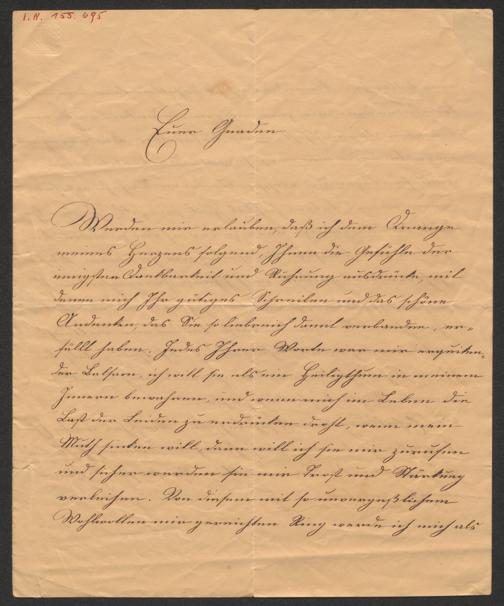 I.N. 155.695
Euer Gnaden
Werden mir erlauben, daß ich dem Drange
meines Herzens folgend, Ihnen die Gefühle der
innigsten Dankbarkeit und Rührung ausdrücke, mit
denen mich Ihr gütiges Schreiben und das schöne
Andenken, das Sie so liebreich damit verbanden, er-
füllt haben. Jedes Ihrer Worte war mir erquicken-
der Balsam, ich will sie als ein Heiligthum in meinem
Innern bewahren, und wenn mich im Leben die
Last der Leiden zu erdrücken droht, wenn mein
Muth sinken will, dann will ich sie mir zurufen
und sicher werden sie mir Trost und Stärkung
verleihen. Von diesem mit so unvergeßlichem
Wohlwollen mir gereichten Ring werde ich mich als